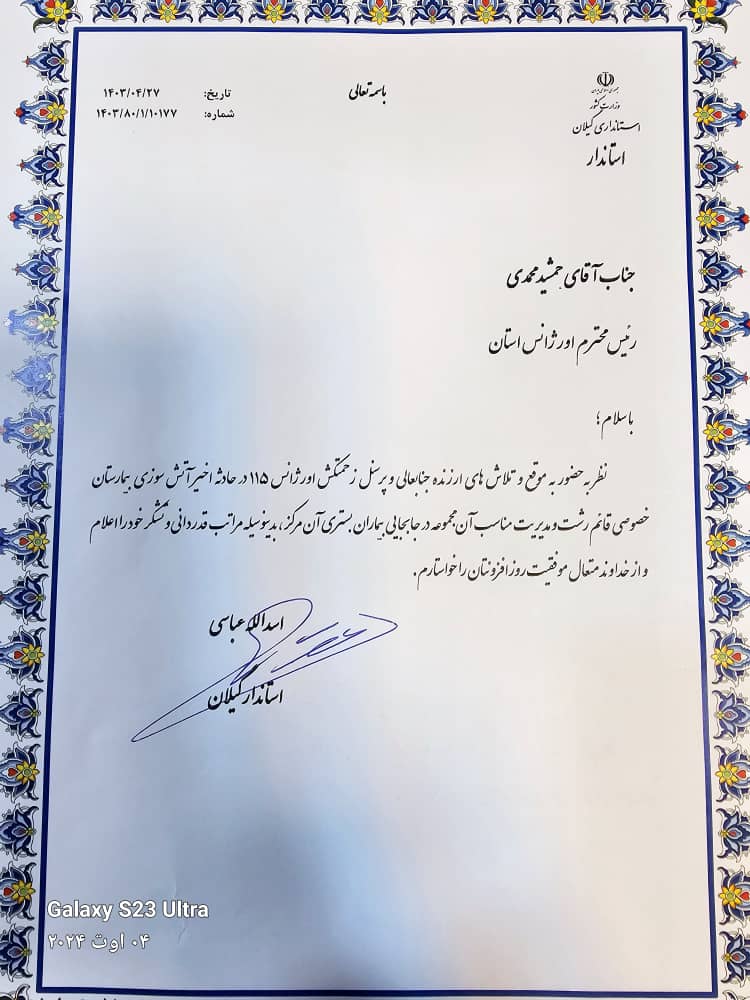 باسمه تعالی
جمهوری اسلامی ایران
وزارت کشور
استانداری گیلان
استاندار
تاریخ: ۱۴۰۳/۰۴/۲۷
شماره: ۱۴۰۳/۸۰/۱/۱۰۱۷۷
جناب آقای جمشید محمدی
رئیس محترم اورژانس استان
با سلام؛
نظر به حضور به موقع و تلاش های ارزنده جنابعالی و پرسنل زحمتکش اورژانس ۱۱۵ در حادثه اخیر آتش سوزی بیمارستان
خصوصی قائم رشت و مدیریت مناسب آن مجموعه در جابجایی بیماران بستری آن مرکز، بدینوسیله مراتب قدردانی و تشکر خود را اعلام
و از خداوند متعال موفقیت روز افزونتان را خواستارم.
اسدالله عباسی
استاندار گیلان
Galaxy S23 Ultra
۰۴ اوت ۲۰۲۴